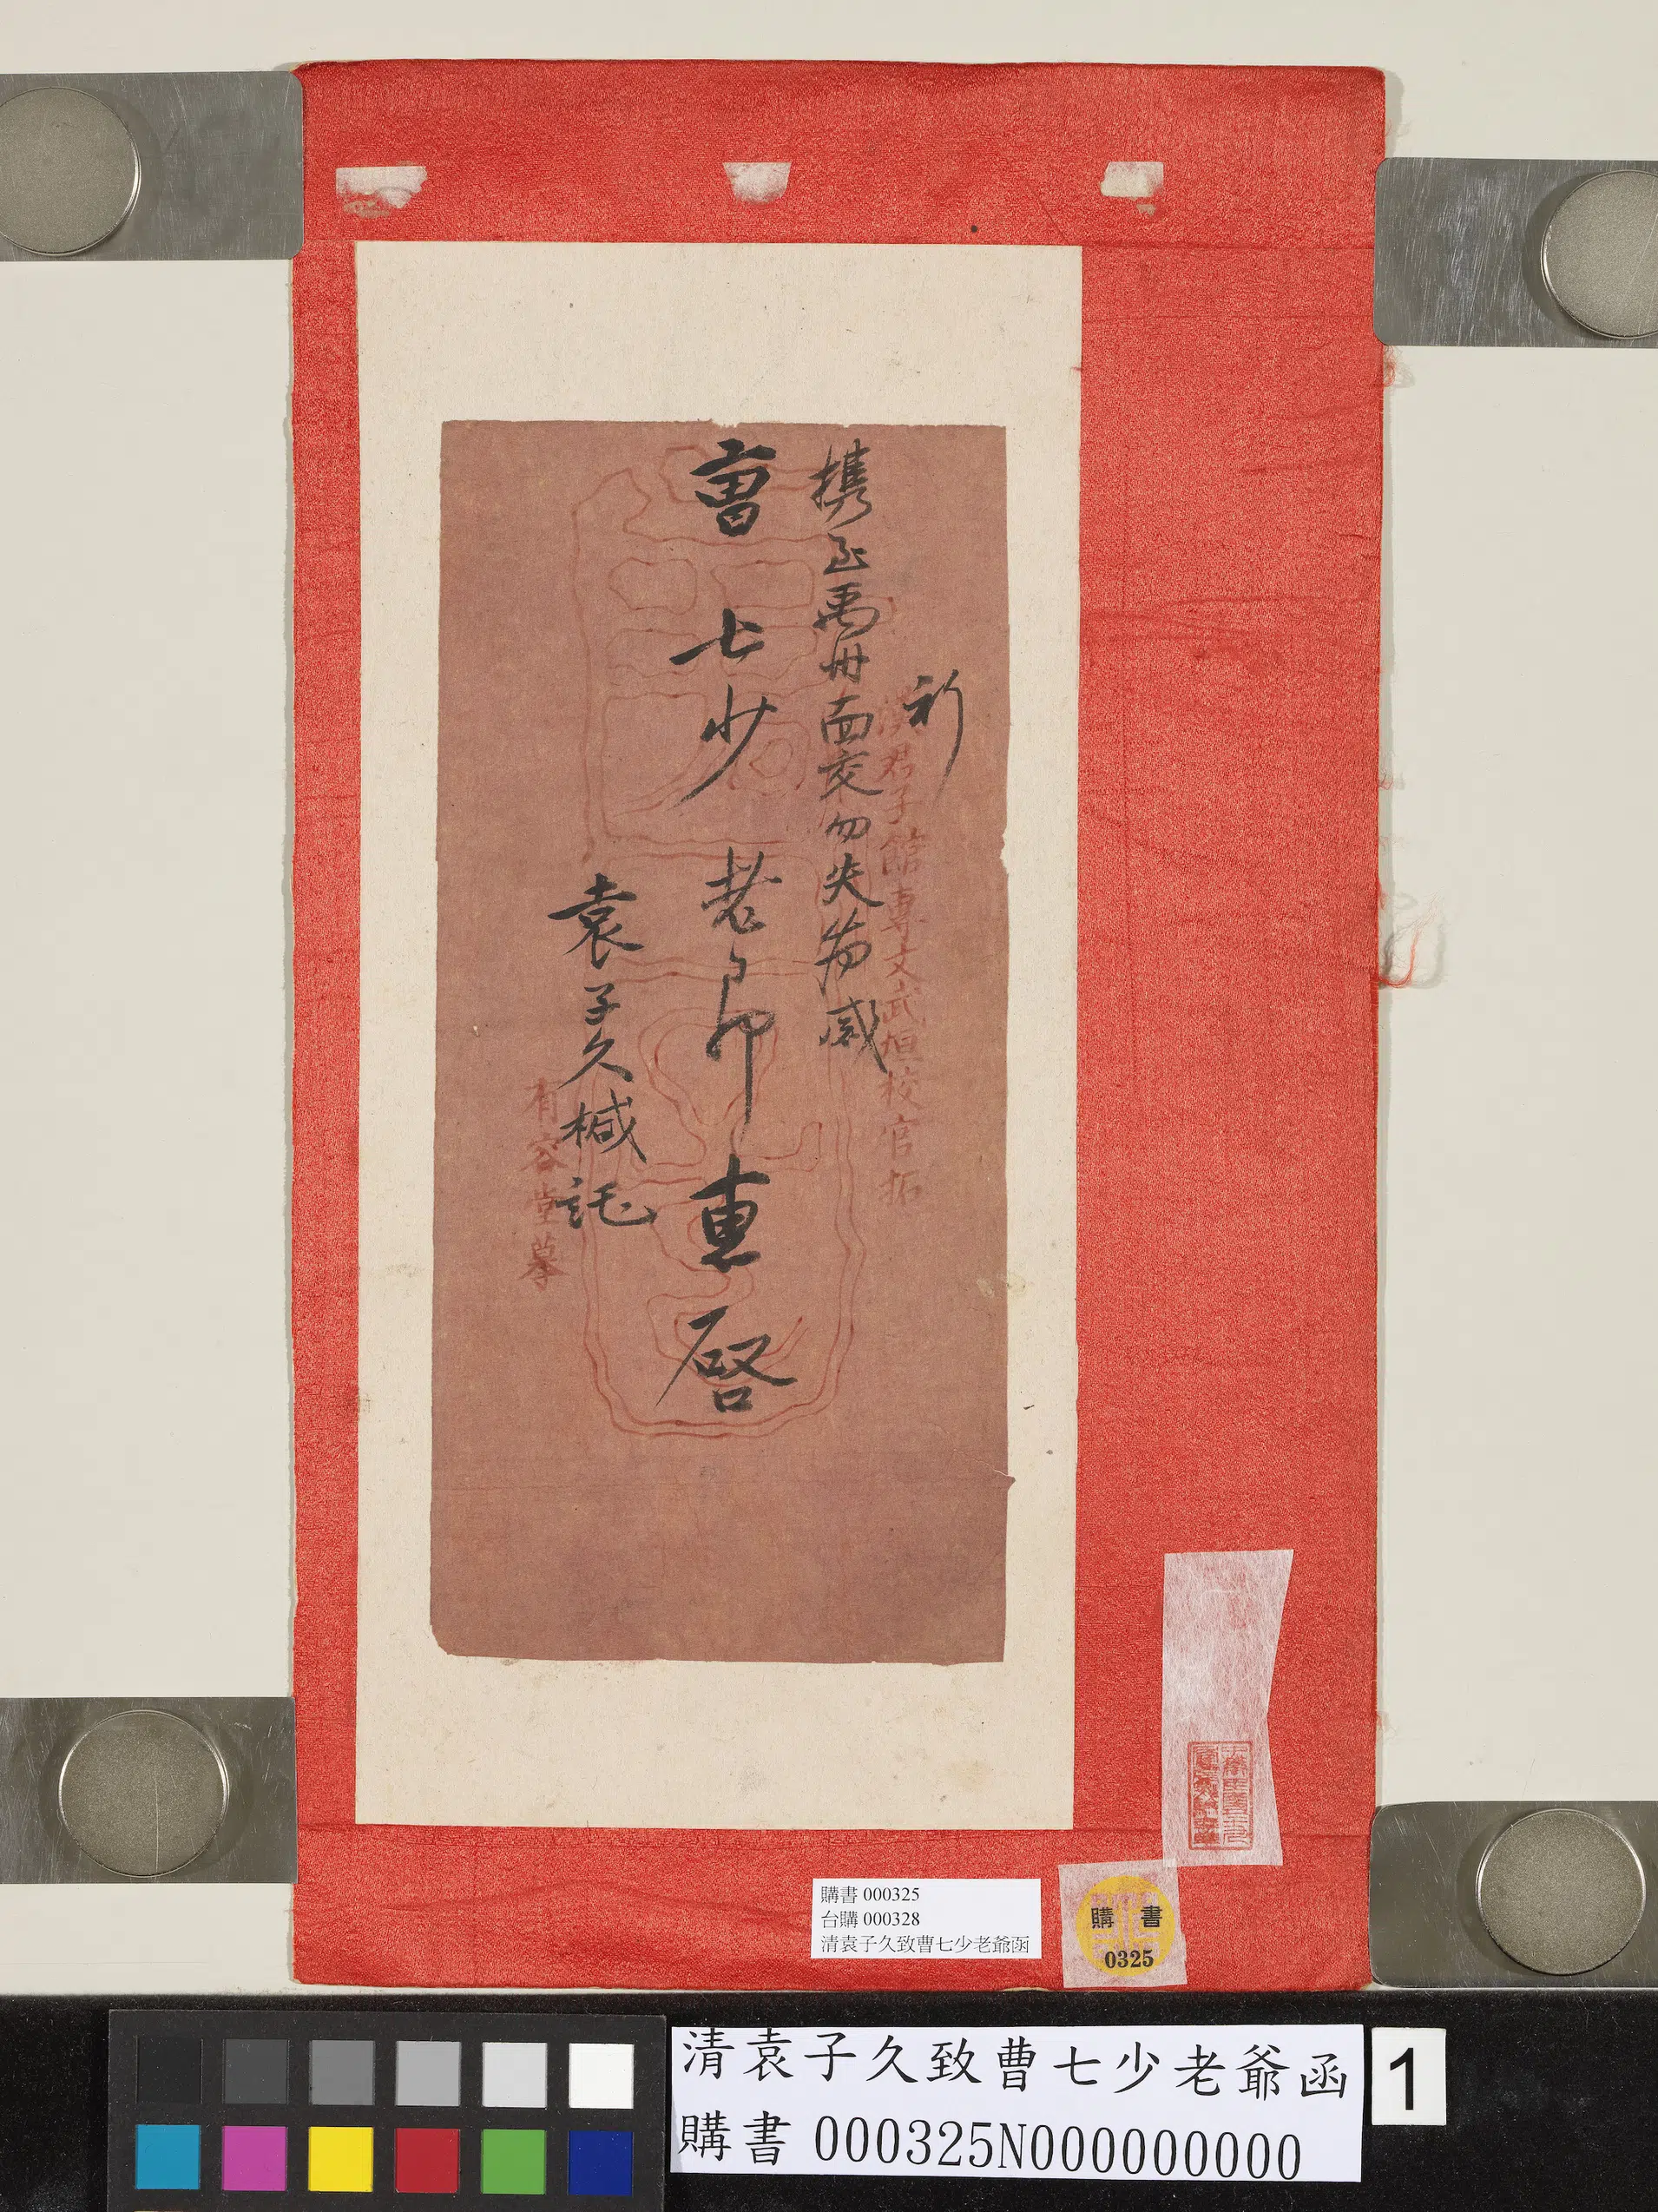 祈
携至禹州面交勿失为感
曹七少老爷惠啓
袁子久緘託
漢君子館專文武垣校官拓
有容堂摹
購書 000325
台購 000328
清袁子久致曹七少老爺函
購 書
0325
清袁子久致曹七少老爺函
購書 000325N000000000
1